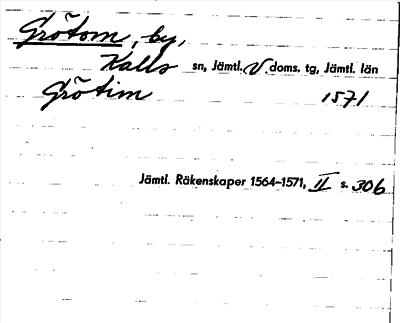 Grötom, by,
Kalls sn, Jämtl. V. doms. tg, Jämtl. län
Grötim 1571
Jämtl. Räkenskaper 1564-1571, II s. 306